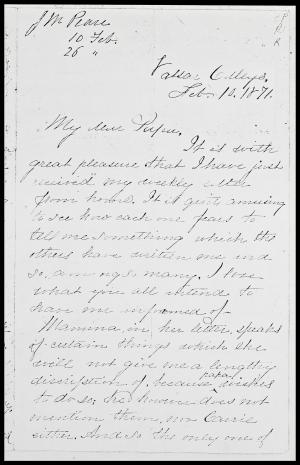 J M Pease
10 Feb.
26 "
P
&
R
Vassar College,
Feb. 10. 1871.
My dear Papa,
It is with
great pleasure that I have just
received my weekly letter
from home. It is quite amusing
to see how each one fears to
tell me something which the
others have written me and
so, among so many, I lose
what you all intend to
have me informed of.
Mamma, in her letter, speaks
of certain things which she
will not give me a lengthy
discription of, because papa wishes
to do so; he however does not
mention them, nor Carrie
either. And so the only one of